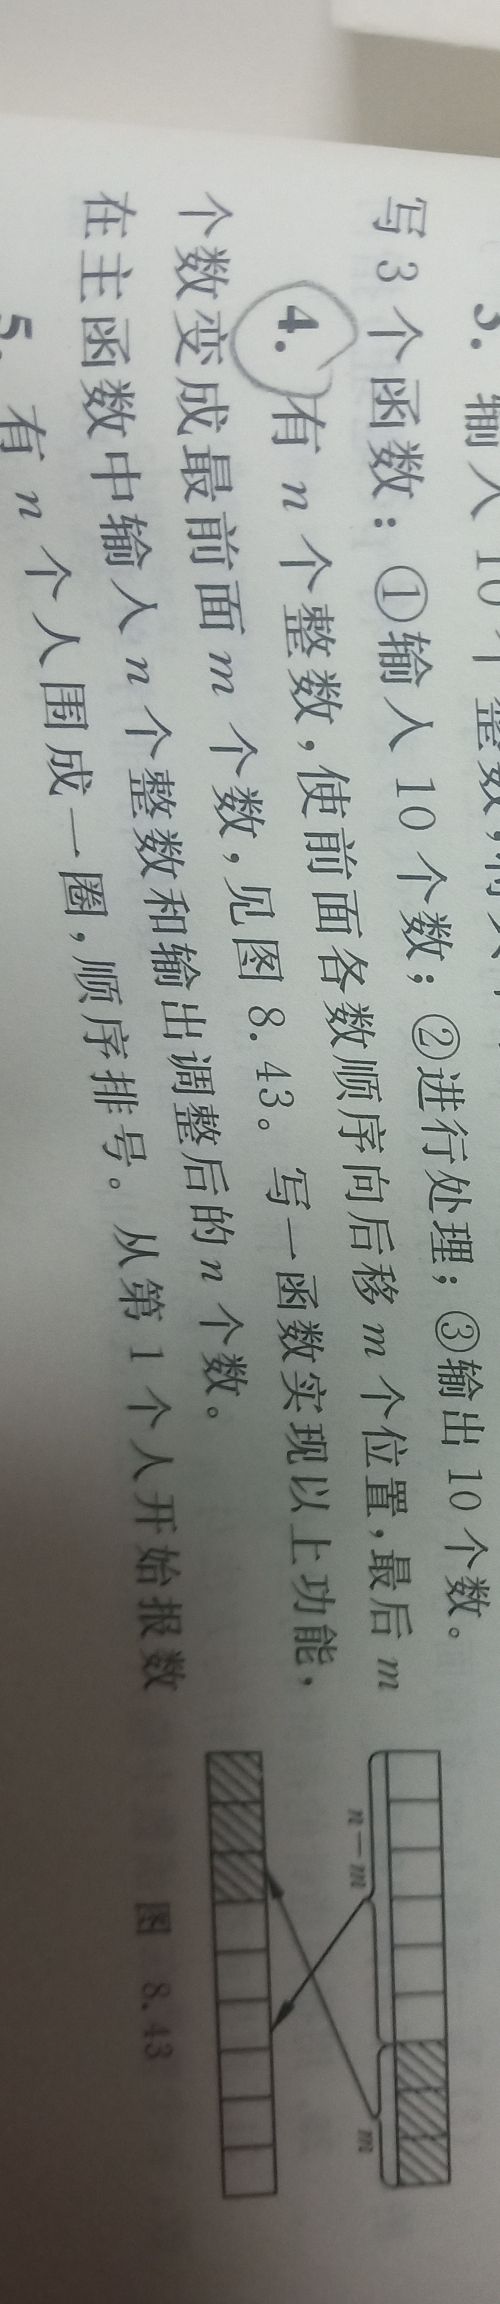 3. 输入10个整数,
写3个函数：①输入10个数；②进行处理；③输出10个数。
4. 有n个整数，使前面各数顺序向后移m个位置，最后m
个数变成最前面m个数，见图8.43。写一函数实现以上功能，
在主函数中输入n个整数和输出调整后的n个数。
5. 有n个人围成一圈，顺序排号。从第1个人开始报数
n－m
m
图 8.43